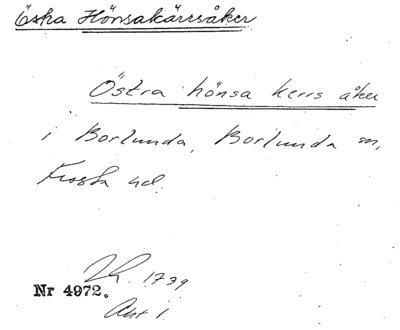 Östra Hönsakärrsåker
Östra hönsa kerrs åker
i Borlunda, Borlunda sn,
Frosta hd.
1739
Nr 4972.
Akt 1.